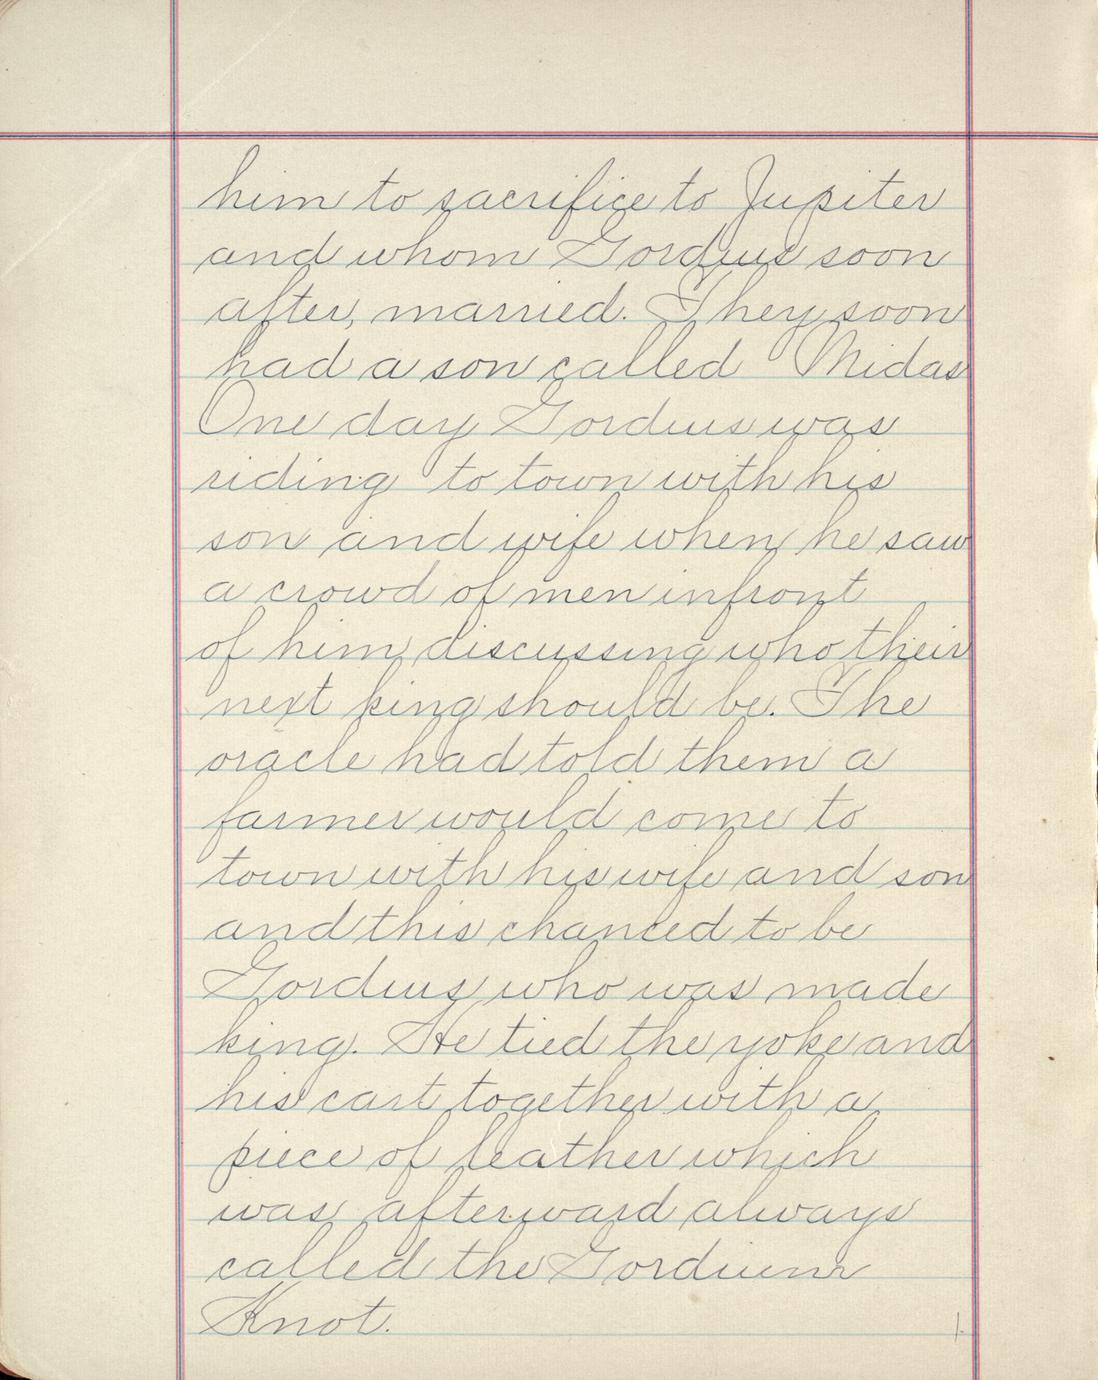 him to sacrifice to Jupiter
and whom Gordius soon
after, married. They soon
had a son called Midas
One day Gordius was
riding to town with his
son and wife when he saw
a crowd of men infront
of him discussing who their
next king should be. The
oracle had told them a
farmer would come to
town with his wife and son
and this chanced to be
Gordius who was made
king. He tied the yoke and
his cart together with a
piece of leather which
was afterward always
called the Gordium
Knot.
1.